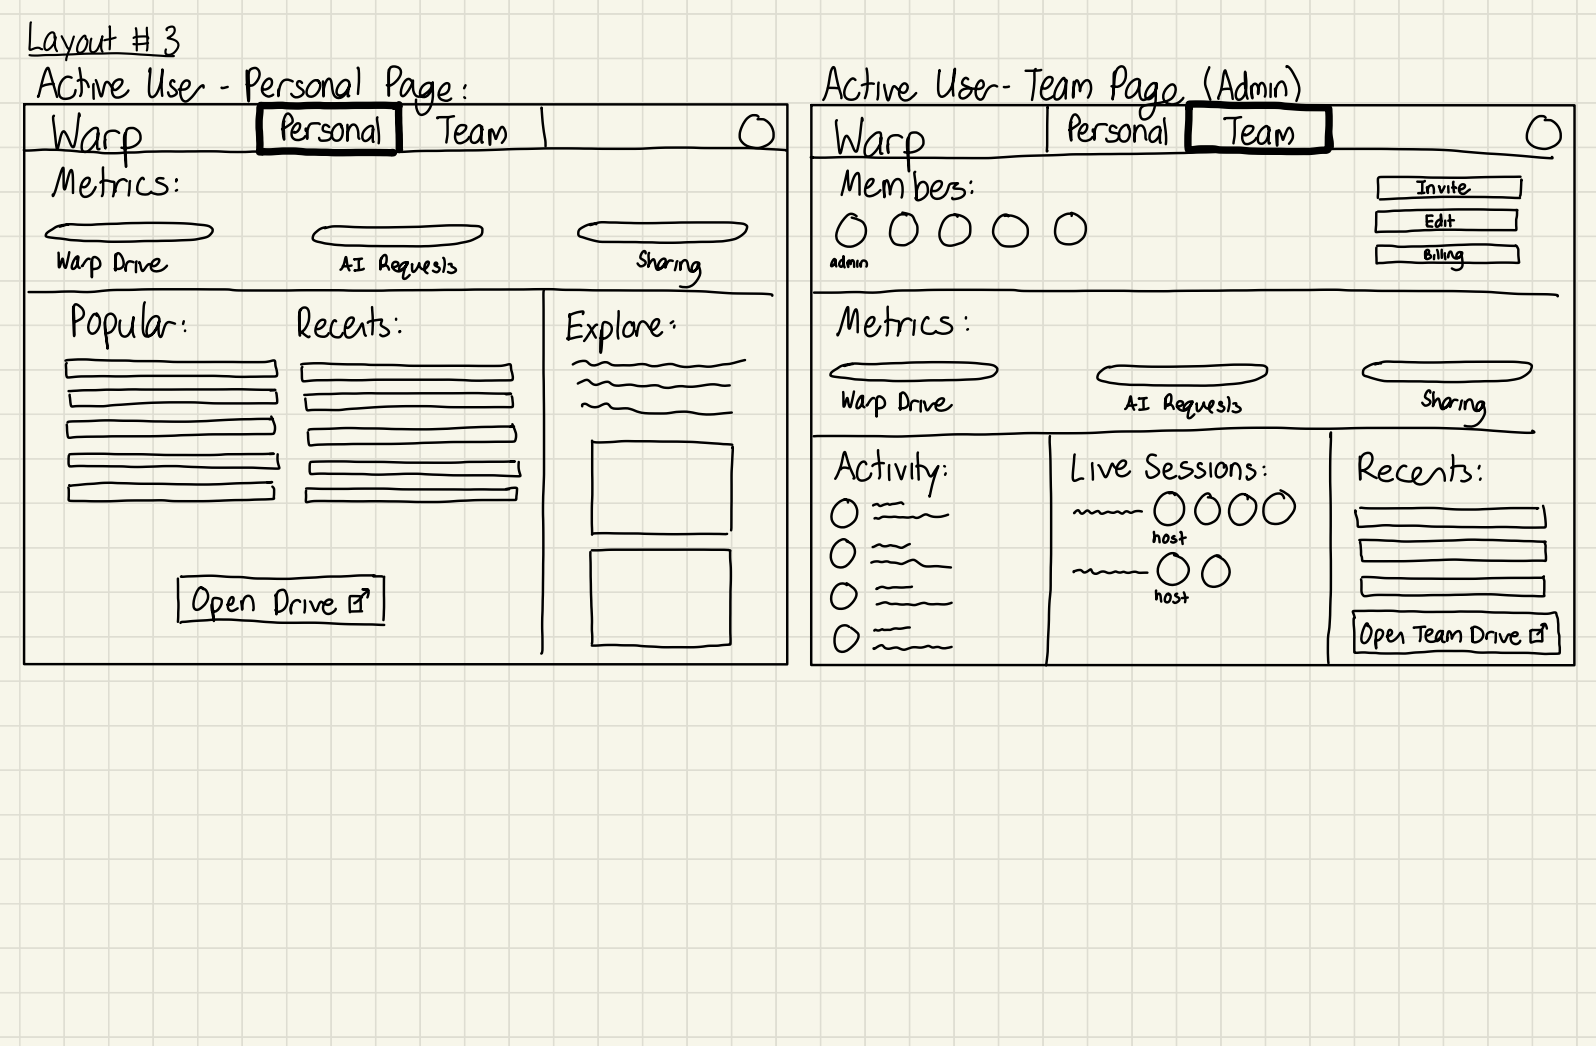 Layout # 3
Active User - Personal Page:
Warp
Personal
Team
Metrics:
Warp Drive
AI Requests
Sharing
Popular:
Recents:
Explore:
Open Drive
Active User - Team Page (Admin)
Warp
Personal
Team
Members:
admin
Invite
Edit
Billing
Metrics:
Warp Drive
AI Requests
Sharing
Activity:
Live Sessions:
host
host
Recents:
Open Team Drive